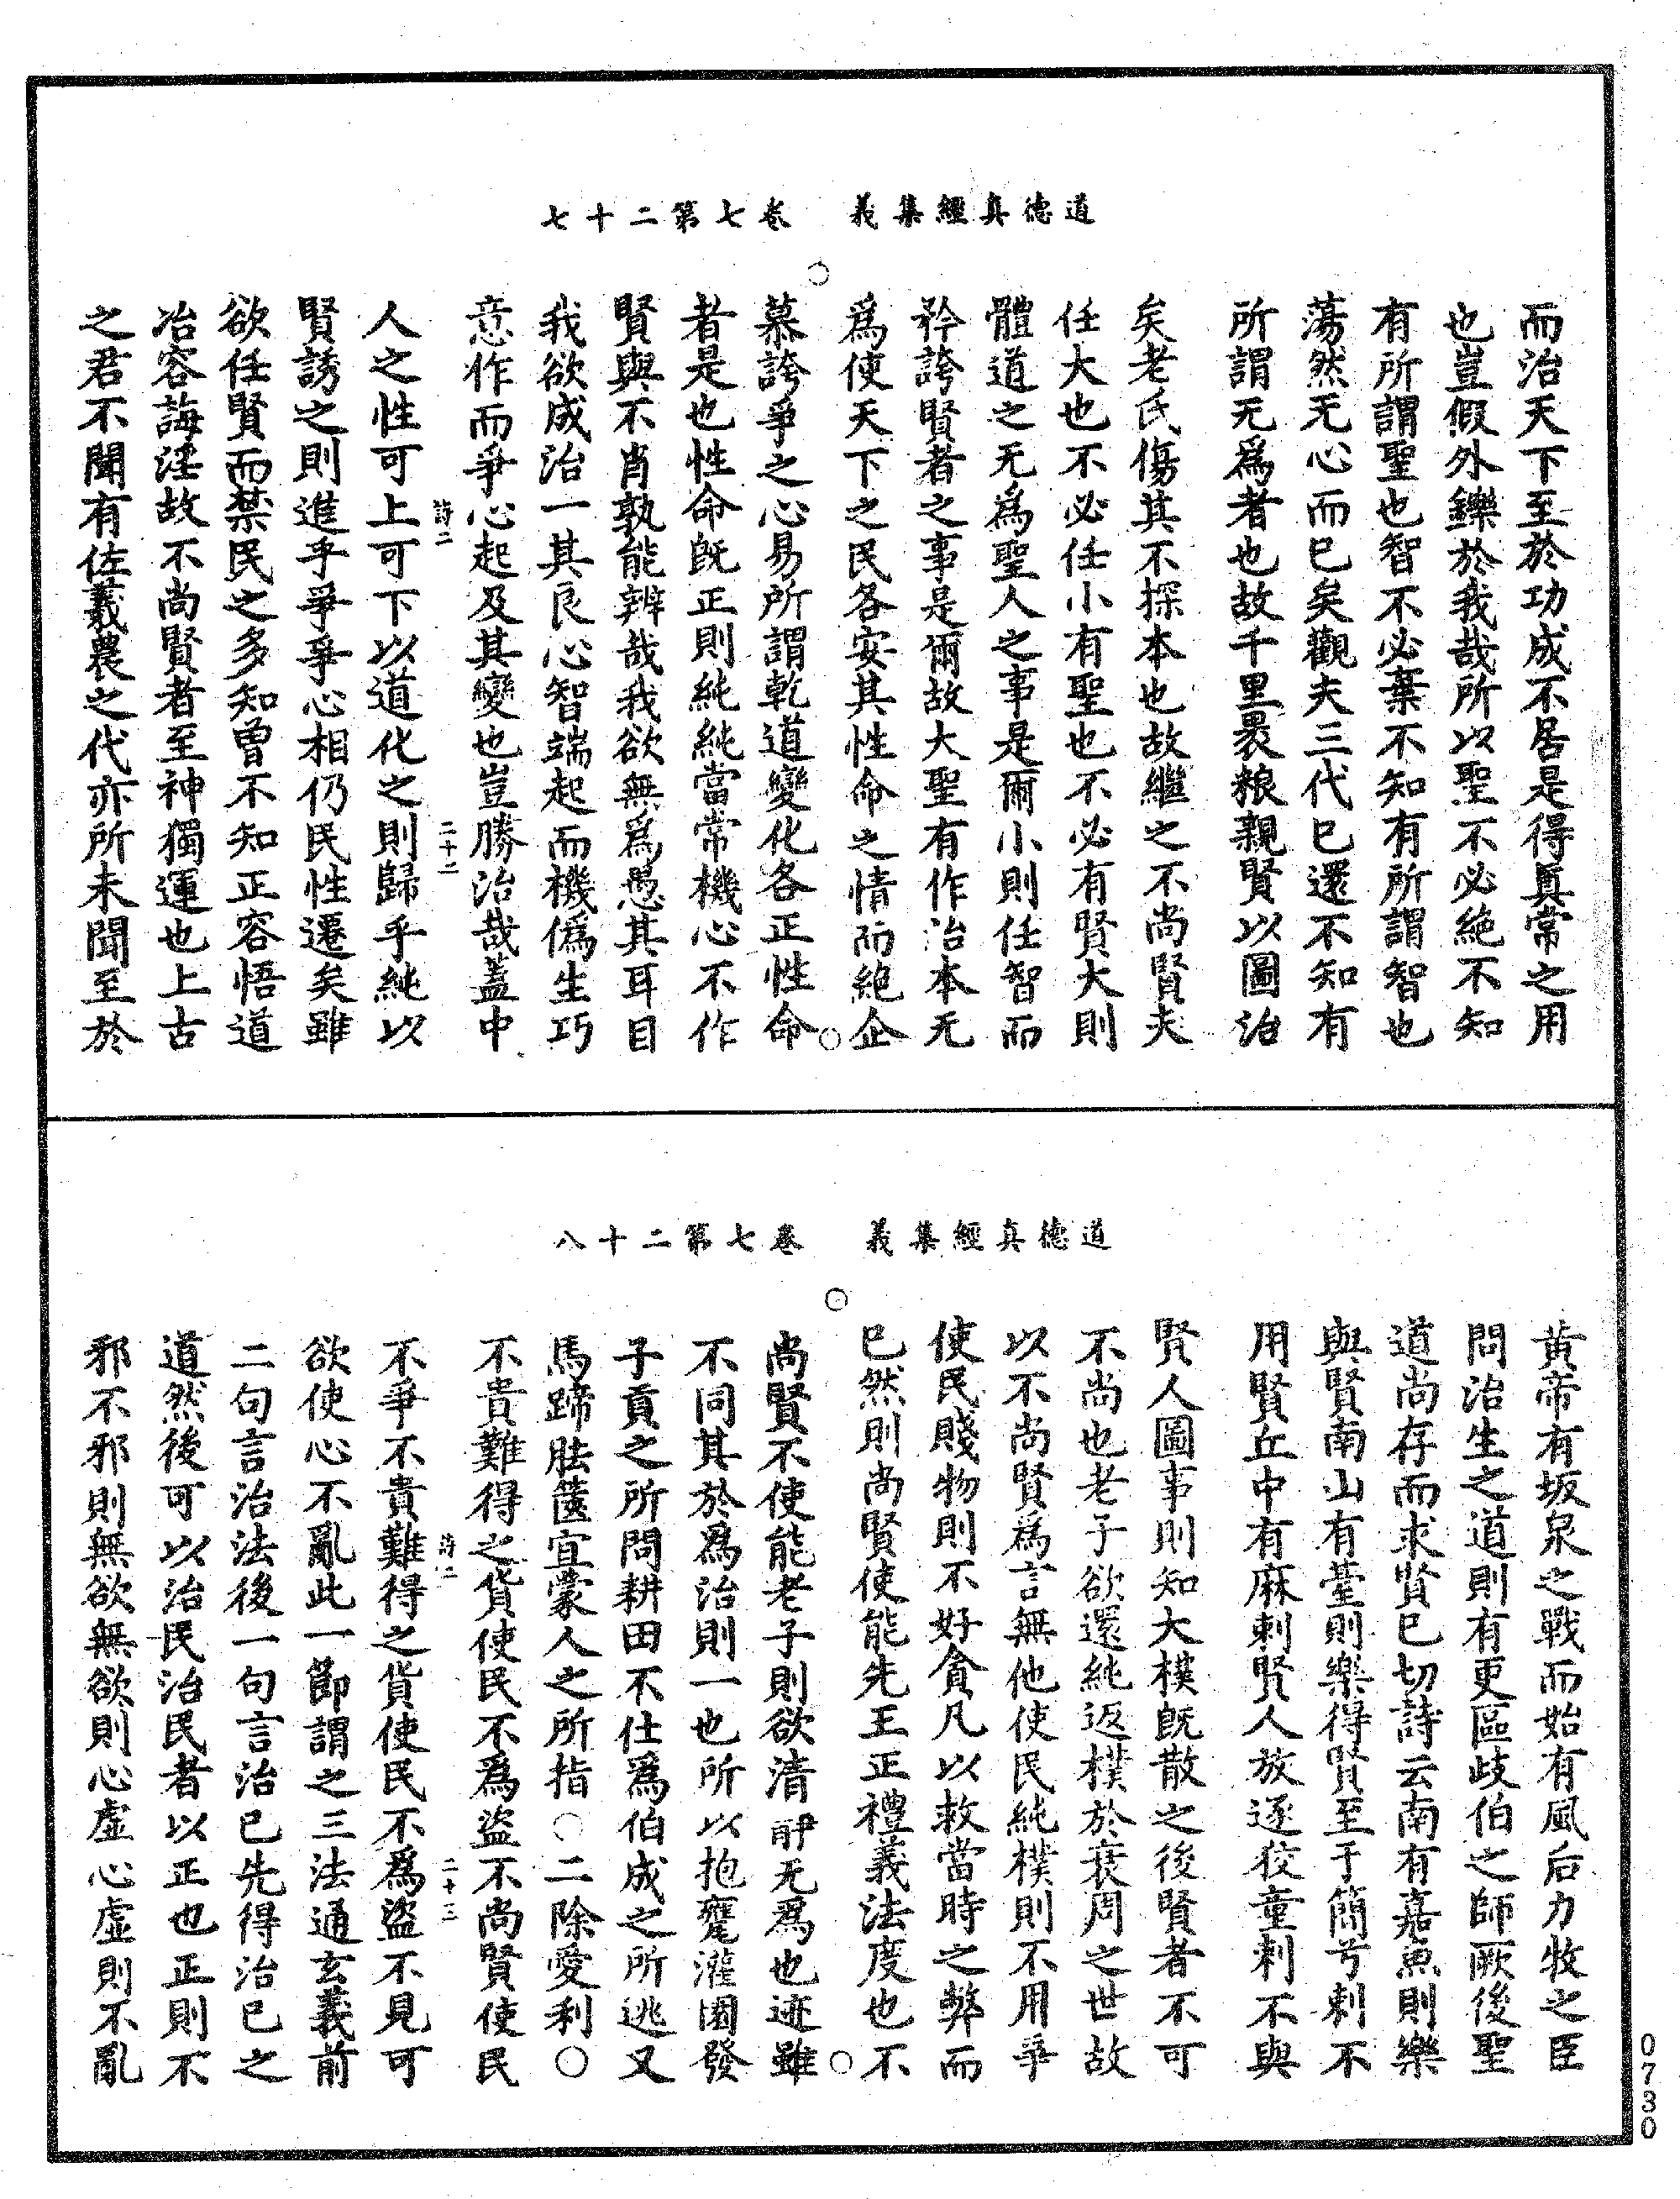 道德真經集義　卷七第二十七
而治天下至於功成不居是得真常之用
也豈假外鑠於我哉所以聖不必絶不知
有所謂聖也智不必棄不知有所謂智也
蕩然无心而已矣觀夫三代已還不知有
所謂无爲者也故千里裹粮親賢以圖治
矣老氏傷其不探本也故繼之不尚賢夫
任大也不必任小有聖也不必有賢大則
體道之无爲聖人之事是爾小則任智而
矜誇賢者之事是爾故大聖有作治本无
爲使天下之民各安其性命之情而絶企
慕誇爭之心易所謂乾道變化各正性命
者是也性命旣正則純純當常機心不作
賢與不肖孰能辨哉我欲無爲愚其耳目
我欲成治一其良心智端起而機僞生巧
意作而爭心起及其變也豈勝治哉蓋中
詩二　二十二
人之性可上可下以道化之則歸乎純以
賢誘之則進乎爭爭心相仍民性遷矣雖
欲任賢而禁民之多知曾不知正容悟道
冶容誨淫故不尚賢者至神獨運也上古
之君不聞有佐羲農之代亦所未聞至於
道德真經集義　卷七第二十八
黃帝有坂泉之戰而始有風后力牧之臣
問治生之道則有更區歧伯之師厥後聖
道尚存而求賢已切詩云南有嘉魚則樂
與賢南山有臺則樂得賢至于簡兮刺不
用賢丘中有麻刺賢人放逐狡童刺不與
賢人圖事則知大樸旣散之後賢者不可
不尚也老子欲還純返樸於衰周之世故
以不尚賢爲言無他使民純樸則不用爭
使民賤物則不好貪凡以救當時之弊而
已然則尚賢使能先王正禮義法度也不
尚賢不使能老子則欲清静无爲也迹雖
不同其於爲治則一也所以抱甕灌園發
子貢之所問耕田不仕爲伯成之所逃又
馬蹄胠篋宜蒙人之所指○二除愛利○
不貴難得之貨使民不爲盜不尚賢使民
詩二　二十三
不爭不貴難得之貨使民不爲盜不見可
欲使心不亂此一節謂之三法通玄義前
二句言治法後一句言治已先得治已之
道然後可以治民治民者以正也正則不
邪不邪則無欲無欲則心虛心虛則不亂
0730